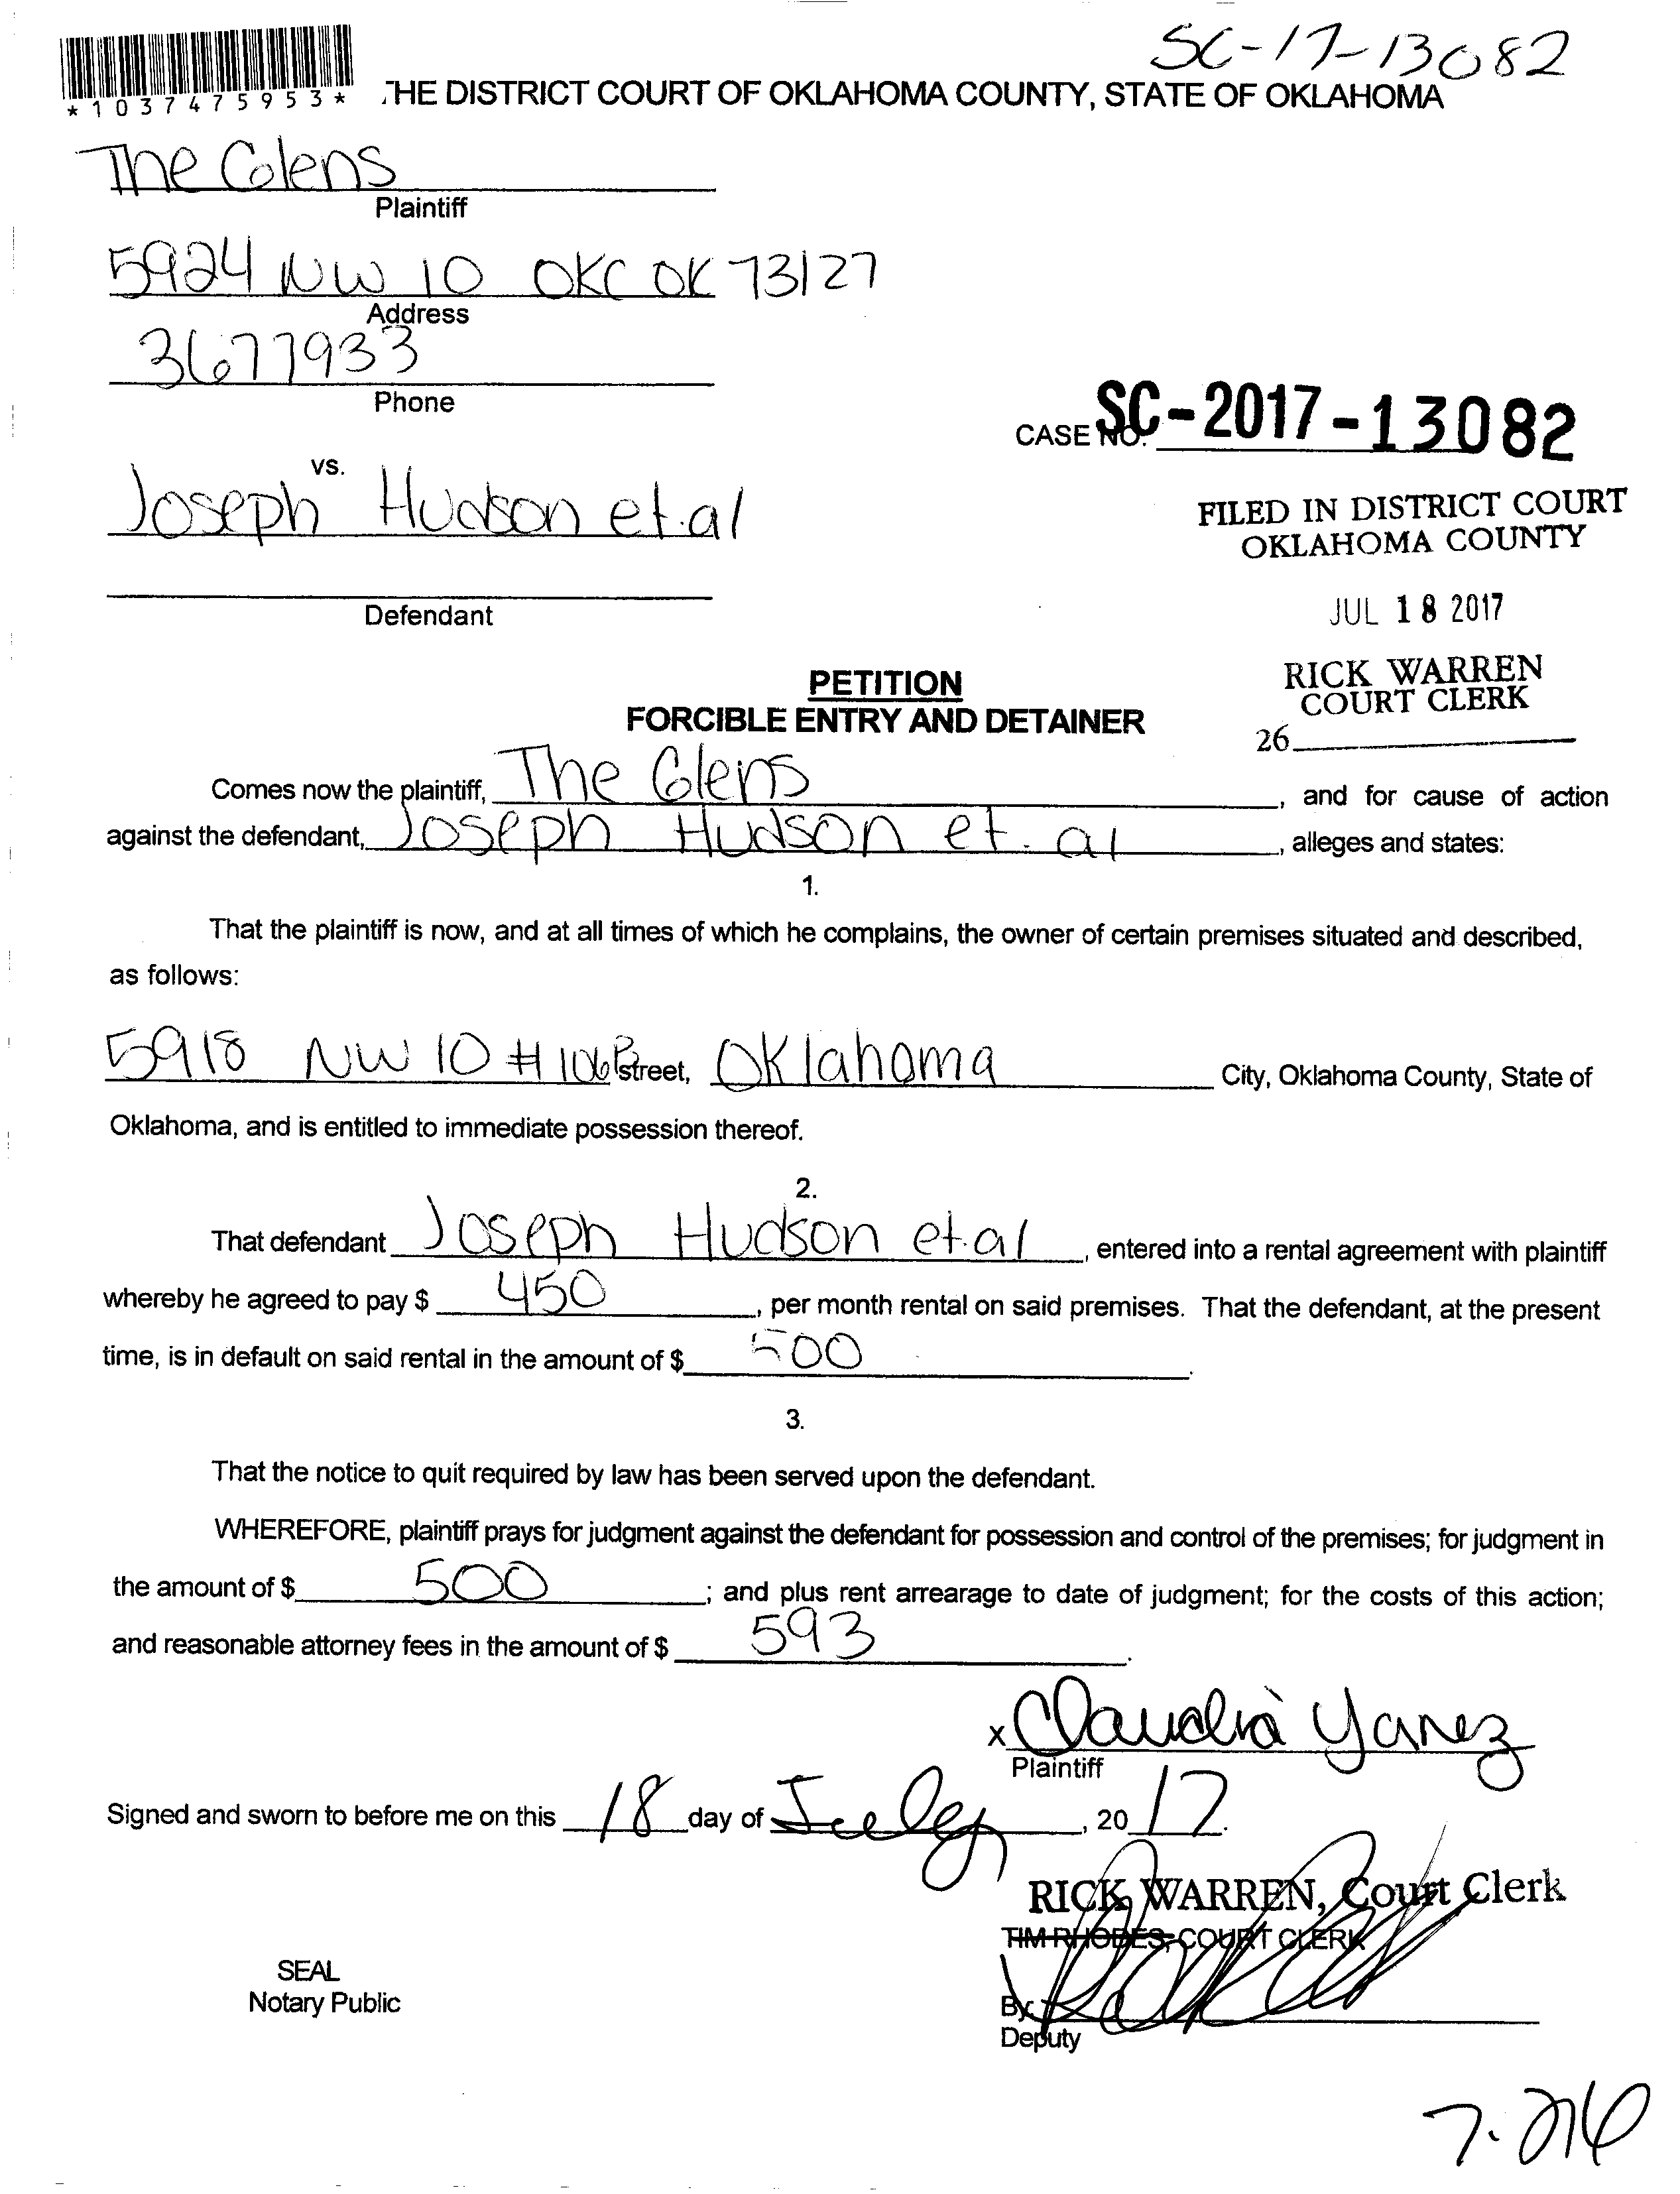 SC-17-13082
*1037475953*
THE DISTRICT COURT OF OKLAHOMA COUNTY, STATE OF OKLAHOMA
The Glens
Plaintiff
5924 NW 10 OKC OK 73127
Address
3677933
Phone
CASE NO. SC-2017-13082
vs.
Joseph Hudson et.al
FILED IN DISTRICT COURT
OKLAHOMA COUNTY
Defendant
JUL 18 2017
RICK WARREN
COURT CLERK
26
PETITION
FORCIBLE ENTRY AND DETAINER
Comes now the plaintiff, The Glens, and for cause of action
against the defendant, Joseph Hudson et. al, alleges and states:
1.
That the plaintiff is now, and at all times of which he complains, the owner of certain premises situated and described,
as follows:
5918 NW 10 # 106 Street, Oklahoma City, Oklahoma County, State of
Oklahoma, and is entitled to immediate possession thereof.
2.
That defendant Joseph Hudson et.al, entered into a rental agreement with plaintiff
whereby he agreed to pay $ 450, per month rental on said premises. That the defendant, at the present
time, is in default on said rental in the amount of $ 500.
3.
That the notice to quit required by law has been served upon the defendant.
WHEREFORE, plaintiff prays for judgment against the defendant for possession and control of the premises; for judgment in
the amount of $ 500; and plus rent arrearage to date of judgment; for the costs of this action;
and reasonable attorney fees in the amount of $ 593.
x Claudia Yanez
Plaintiff
Signed and sworn to before me on this 18 day of July, 2017.
RICK WARREN, Court Clerk
TIM RHODES, COURT CLERK
SEAL
Notary Public
By:
Deputy